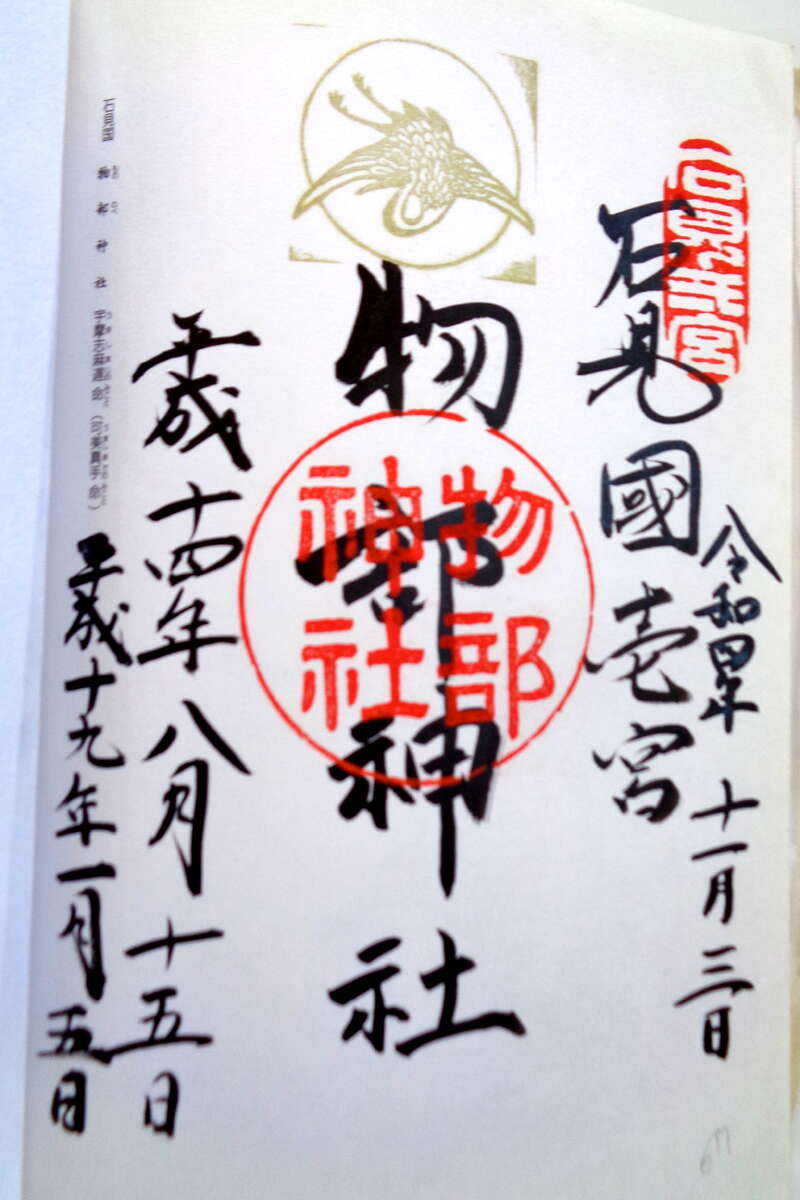 令和四年 十一月三日
石見國壱宮
石見一宮
物部神社
物部
神社
平成十四年八月十五日
平成十九年一月五日
石見国 物部神社 宇摩志麻遅命(可美真手命)